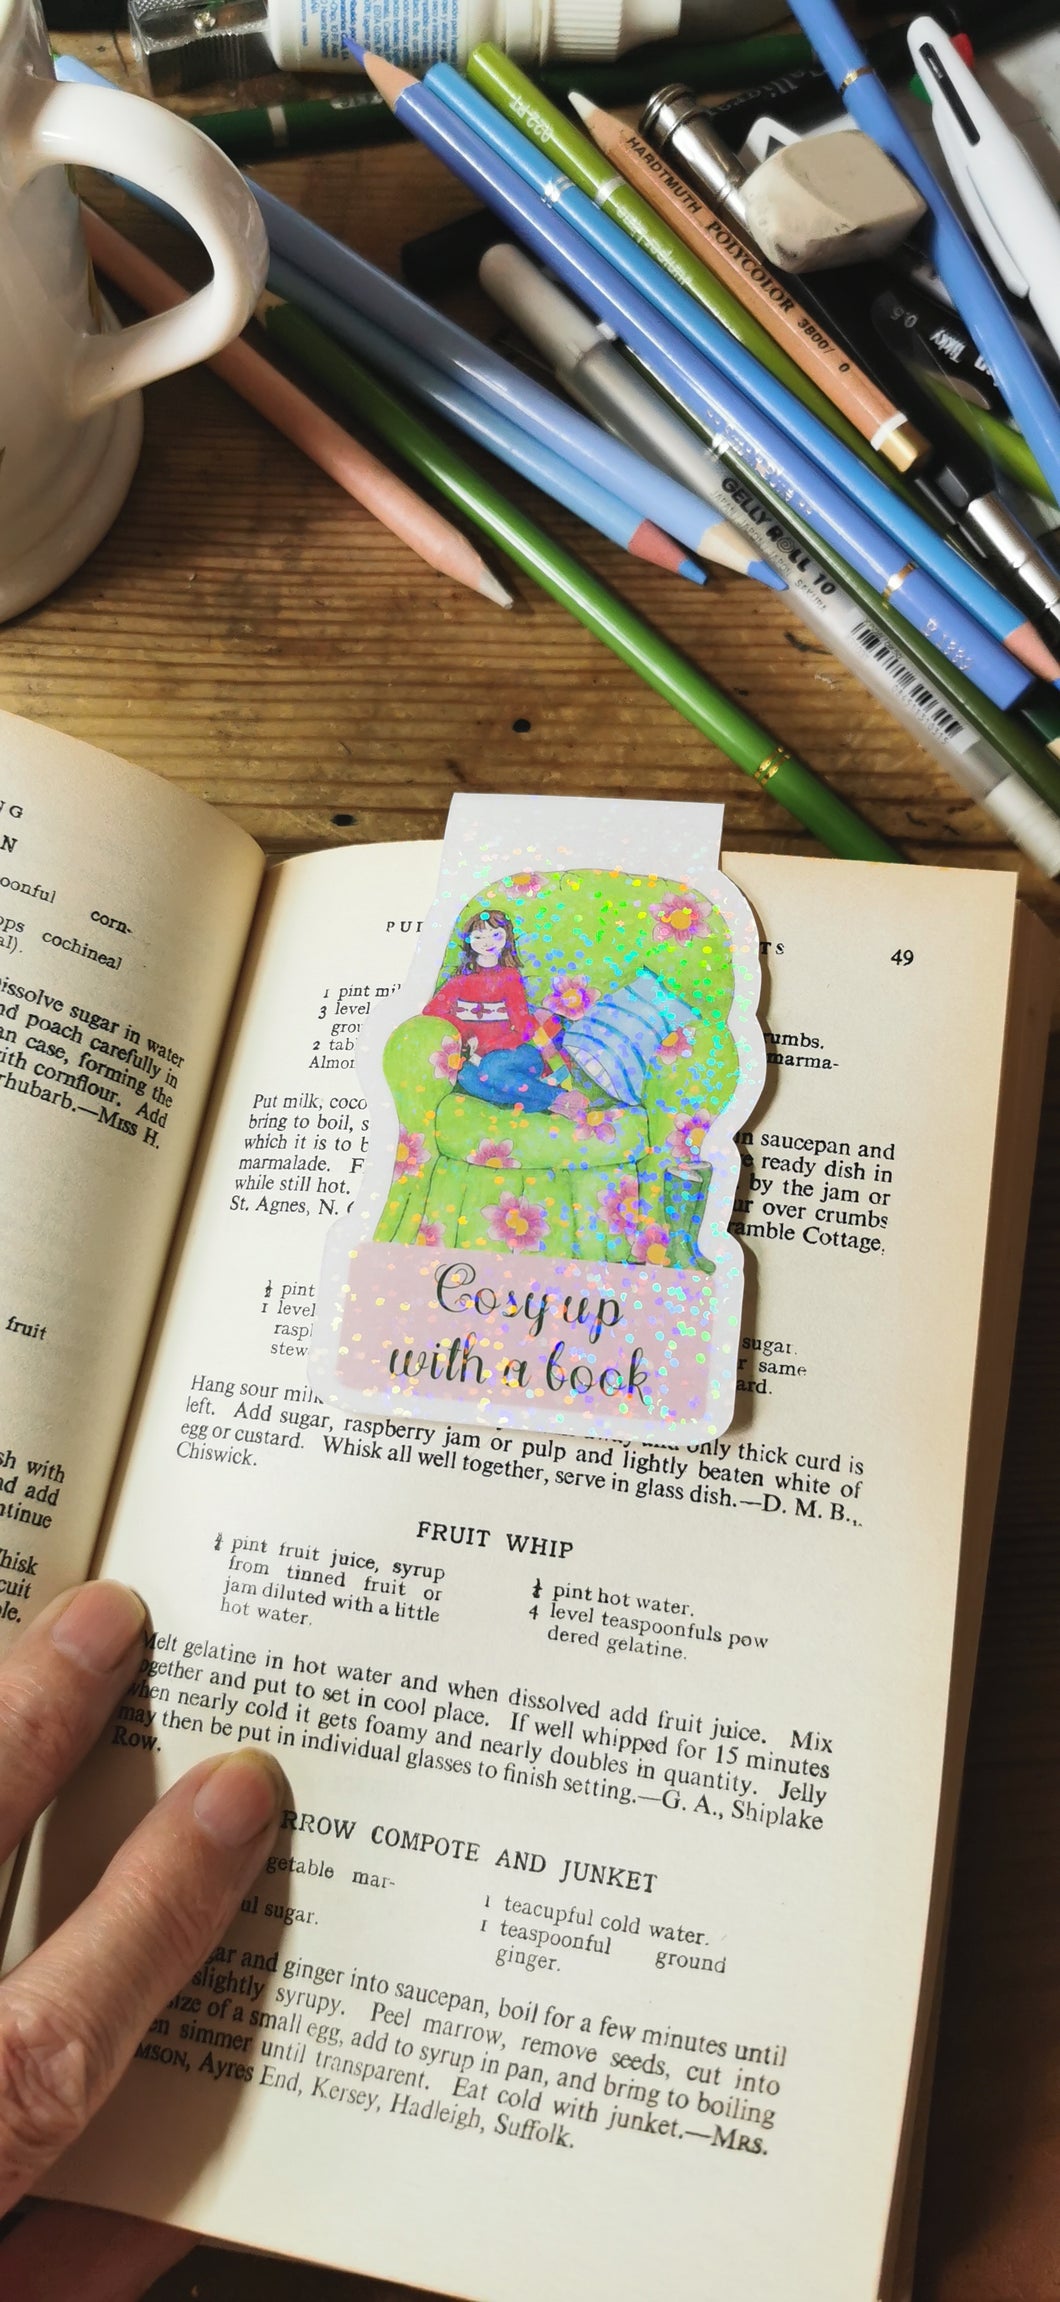 HARDTMUTH POLYCOLOR 3800/ 0
GELLY ROLL 10
JAPAN SAKURA
0.5
NG
N
oonful corn-
ops cochineal
al).
issolve sugar in water
nd poach carefully in
an case, forming the
with cornflour. Add
rhubarb.—MISS H.
fruit
sh with
nd add
ntinue
Whisk
cuit
ble.
PU TS 49
1 pint mi
3 level
grou
2 tab
Almor
rumbs.
marma-
Put milk, coco n saucepan and
bring to boil, s e ready dish in
which it is to b by the jam or
marmalade. F ur over crumbs
while still hot. ramble Cottage,
St. Agnes, N.
½ pint
1 level
rasp
stew
sugar.
r same
ard.
Cosy up
with a book
Hang sour milk away and only thick curd is
left. Add sugar, raspberry jam or pulp and lightly beaten white of
egg or custard. Whisk all well together, serve in glass dish.—D. M. B.,
Chiswick.
FRUIT WHIP
pint fruit juice, syrup
from tinned fruit or
jam diluted with a little
hot water.
pint hot water.
4 level teaspoonfuls pow
dered gelatine.
Melt gelatine in hot water and when dissolved add fruit juice. Mix
ogether and put to set in cool place. If well whipped for 15 minutes
when nearly cold it gets foamy and nearly doubles in quantity. Jelly
may then be put in individual glasses to finish setting.—G. A., Shiplake
Row.
RROW COMPOTE AND JUNKET
getable mar-
ul sugar.
1 teacupful cold water.
1 teaspoonful ground
ginger.
gar and ginger into saucepan, boil for a few minutes until
slightly syrupy. Peel marrow, remove seeds, cut into
size of a small egg, add to syrup in pan, and bring to boiling
en simmer until transparent. Eat cold with junket.—MRS.
MSON, Ayres End, Kersey, Hadleigh, Suffolk.